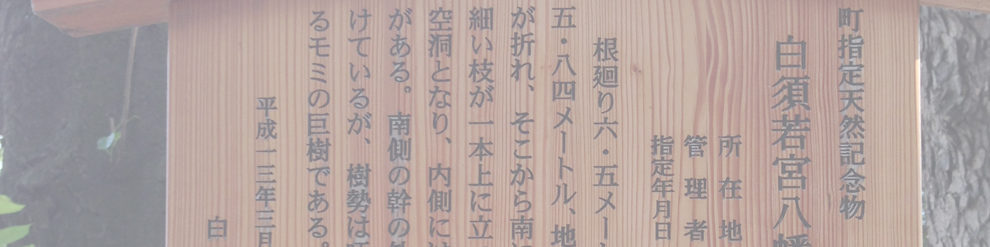 町指定天然記念物
白須若宮八幡
所在地
管理者
指定年月日
根廻り六・五メー
五・八四メートル、地
が折れ、そこから南に
細い枝が一本上に立
空洞となり、内側には
がある。南側の幹の
けているが、樹勢は
るモミの巨樹である。
平成一三年三月
白